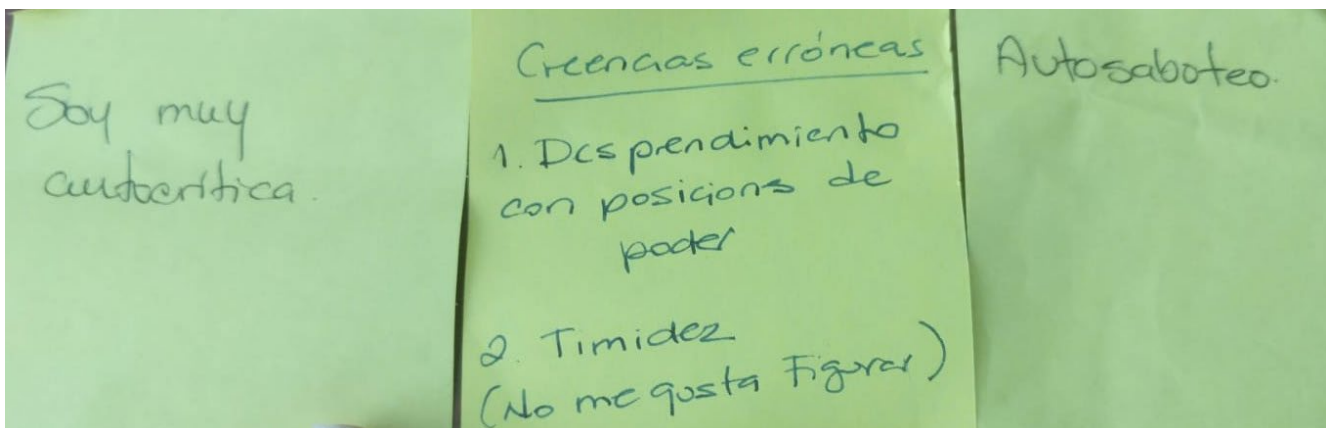 Soy muy
autocrítica.
Creencias erróneas
1. Desprendimiento
con posicions de
poder
2. Timidez
(No me gusta Figurar)
Autosaboteo.